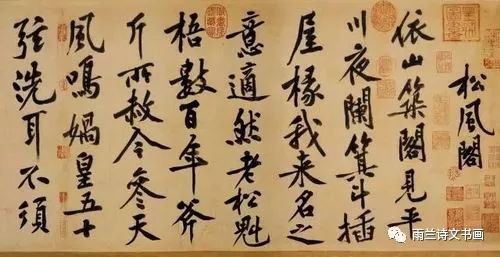 松風閣
依山築閣見平
川夜闌箕斗插
屋椽我来名之
意適然老松魁
梧數百年斧
斤所赦今參天
風鳴媧皇五十
弦洗耳不須
雨兰诗文书画